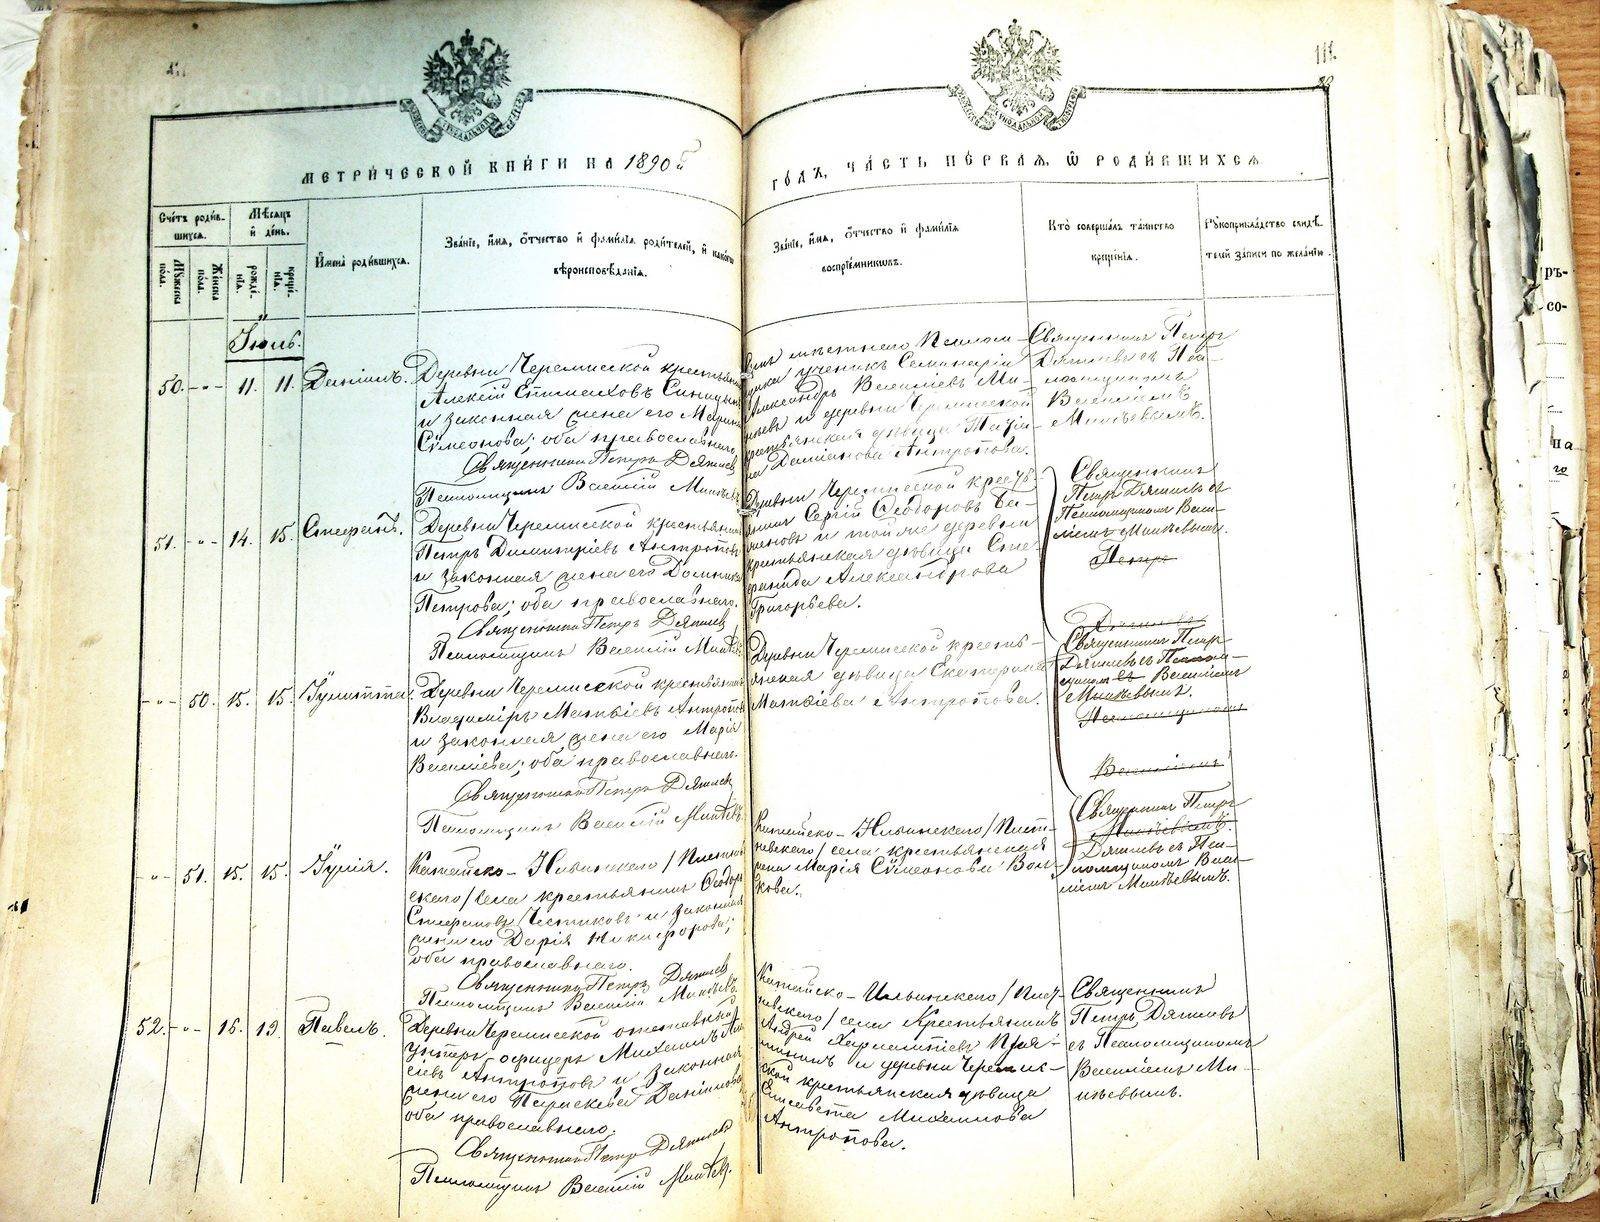 111.
КІЕВСКОЙ СѴНОДАЛЬНОЙ ТИПОГРАФІИ
СѴНОДАЛЬНОЙ
МЕТРИ́ЧЕСКОЙ КНИ́ГИ НА 1890й
ГО́ДЪ, ЧА́СТЬ ПЕ́РВАЯ, Ѿ РОДИ́ВШИХСЯ
Сче́тъ роди́в-
шихся.
Мѣ́сяцъ
и҆ де́нь.
Му́жеска
по́ла.
Же́нска
по́ла.
рожде́-
нія.
креще́-
нія.
И҆мена̀ роди́вшихся.
Зва́ніе, и҆́мя, ѻ҆́тчество и҆ фами́лія роди́телей, и҆ како́гѡ
вѣроисповѣ́данія.
Зва́ніе, и҆́мя, ѻ҆́тчество и҆ фами́лія
воспріе́мниковъ.
Кто̀ соверша́лъ та́инство
креще́нія.
Рукоприкла́дство свидѣ́-
телей за́писи по жела́нію.
Іюль.
50. -"- 11. 11. Даніилъ.
Деревни Черемисской крестьянинъ
Алексій Епимаховъ Синицынъ
и законная жена его Марина
Сѵмеонова; оба православнаго.
Священникъ Петръ Дягилев
Псаломщикъ Василій Минѣевъ
Сынъ мѣстнаго Псалом-
щика ученикъ Семинаріи
Александръ Василіевъ Ми-
нѣевъ и деревни Черемисской
крестьянская дѣвица Татіа-
на Даміанова Антропова.
Священникъ Петръ
Дягилевъ съ Пса-
ломщикомъ
Василіемъ
Минѣевымъ.
51. -"- 14. 15. Стефанъ.
Деревни Черемисской крестьянинъ
Петръ Димитріевъ Антроповъ
и законная жена его Домника
Петрова; оба православнаго.
Священникъ Петръ Дягилев
Псаломщикъ Василій Минѣевъ
Деревни Черемисской кресть-
янинъ Сергій Ѳеодоровъ
и той же деревни
крестьянская дѣвица Сте-
фанида Александрова
Григорьева.
Священникъ
Петръ Дягилевъ съ
Псаломщикомъ Васи-
ліемъ Минѣевымъ.
Петръ
-"- 50. 15. 15. Іулитта.
Деревни Черемисской крестьянинъ
Владиміръ Матвіевъ Антроповъ
и законная жена его Марія
Василіева; оба православнаго.
Священникъ Петръ Дягилев
Псаломщикъ Василій Минѣевъ
Деревни Черемисской кресть-
янская дѣвица Екатерина
Матвіева Антропова.
Священникъ Петръ
Дягилевъ съ
Василіемъ
Минѣевымъ.
Псаломщикомъ
Василіемъ
-"- 51. 15. 15. Іулія.
Катайско-Ильинскаго
скаго/ села крестьянинъ Ѳеодоръ
Стефановъ и законная
жена его Дарія Никифорова;
оба православнаго.
Священникъ Петръ Дягилев
Псаломщикъ Василій Минѣевъ
Катайско-Ильинскаго
села крестьянская
Марія Сѵмеонова Вол-
кова.
Священникъ Петръ
Минѣевымъ.
Дягилевъ съ Пса-
ломщикомъ Васи-
ліемъ Минѣевымъ.
52. -"- 16. 19. Павелъ.
Деревни Черемисской отставный
унтеръ-офицеръ Михаилъ
Антроповъ и законная
жена его Параскева Даніилова
оба православнаго.
Священникъ Петръ Дягилев
Псаломщикъ Василій Минѣев.
Катайско-Ильинскаго
села Крестьянинъ
Андрей Харлампіевъ
и деревни Черемис-
ской крестьянская дѣвица
Елисавета Михаилова
Антропова.
Священникъ
Петръ Дягилевъ
съ Псаломщикомъ
Василіемъ Ми-
нѣевымъ.
ръ-
со-
на
го